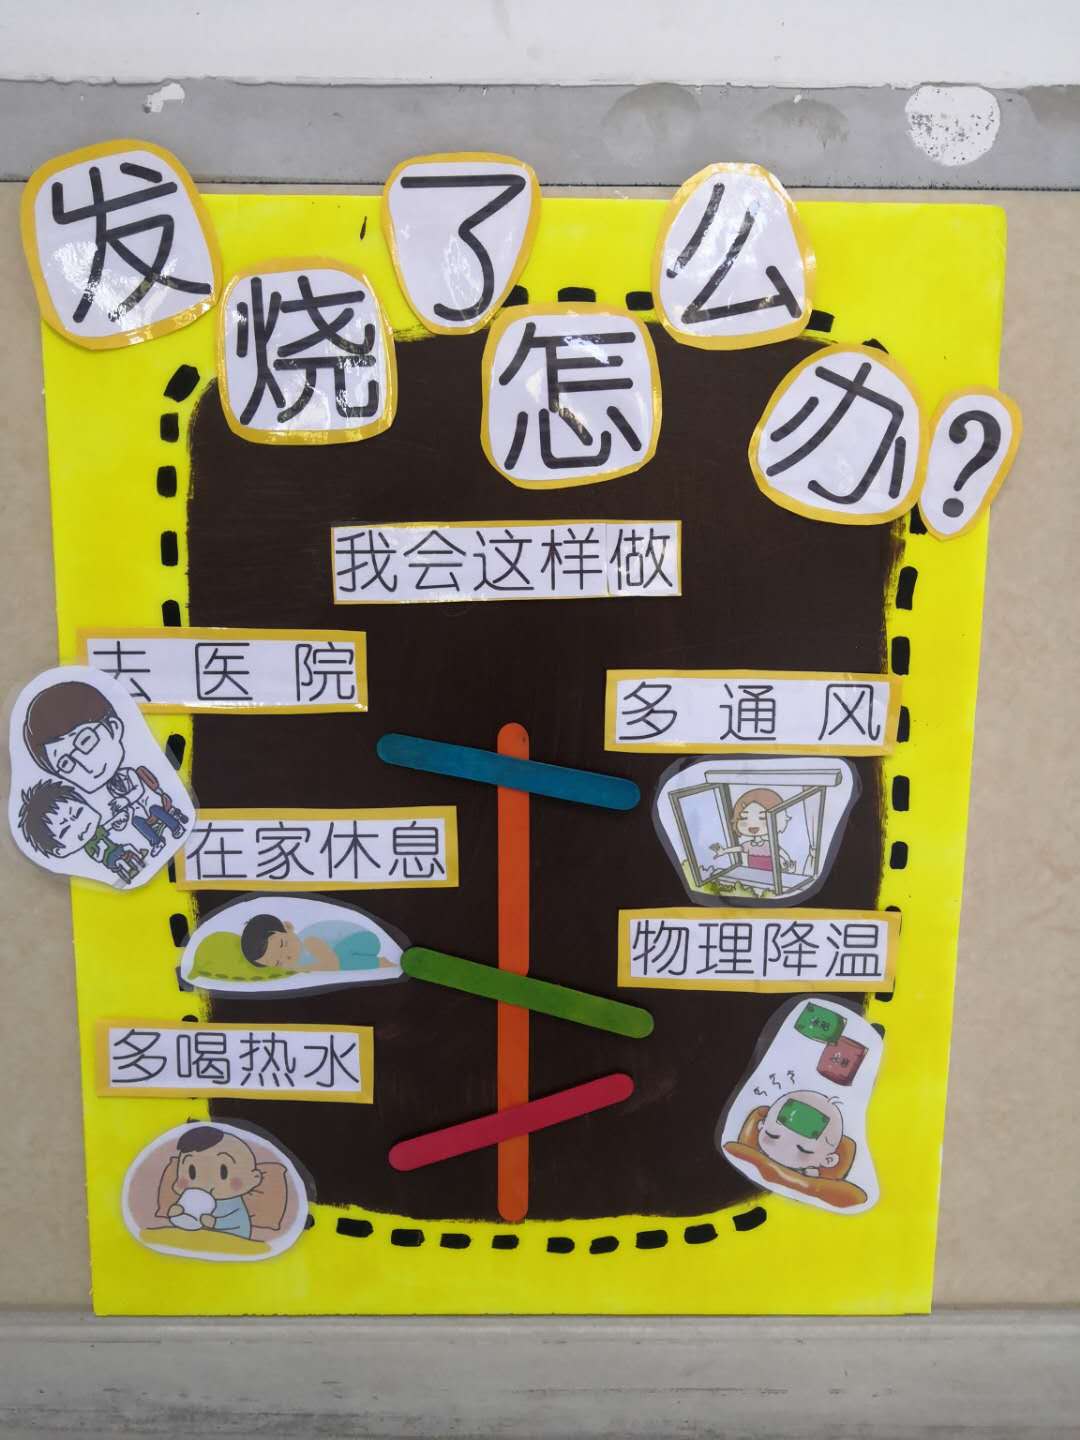 发烧了怎么办?
我会这样做
去医院
多通风
在家休息
物理降温
多喝热水